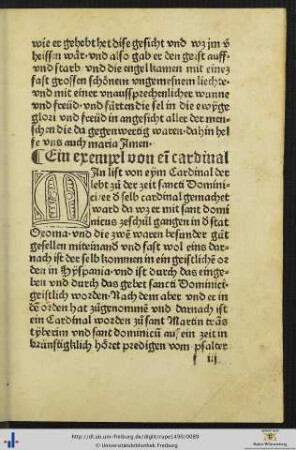 wie er gehebt het dise gesicht vnd wz jm v̄
heissen wår· vnd also gab er den geist auff·
vnd starb vnd die engel kamen mit einez
fast grossen schönem vngemesnem liechte·
vnd mit einer vnaussprechenlicher wunne
vnd freüd· vnd fürten die sel in die ewyge
glori vnd freüd in angesicht aller der men-
schen die da gegenwertig waren· da hin hel
fe vns auch maria Amen·
¶ Ein exempel von eī cardinal
MAn list von eym Cardinal der
lebt zů der zeit sancti Domini
ci· er d selb cardinal gemachet
ward da wz er mit sant domi
nicus ze schůl gangen in d stat
Oxoma· vnd die zwē waren besunder gůt
gesellen miteinand vnd fast wol eins dar-
nach ist der selb kommen in ein geistlichē or
den in Hyspania· vnd ist durch das einge-
ben vnd durch das gebet sancti Dominici·
geistlich worden· Nach dem aber vnd er in
dē orden hat zůgenommē vnd darnach ist
ein Cardinal worden zů sant Martin trās
tyberim vnd sant dominicū auf ein zeit in
brünstigklich höret predigen vom psalter
f iij
http://dl.ub.uni-freiburg.de/diglit/rupe1490/0089
© Universitätsbibliothek Freiburg
Baden-Württemberg